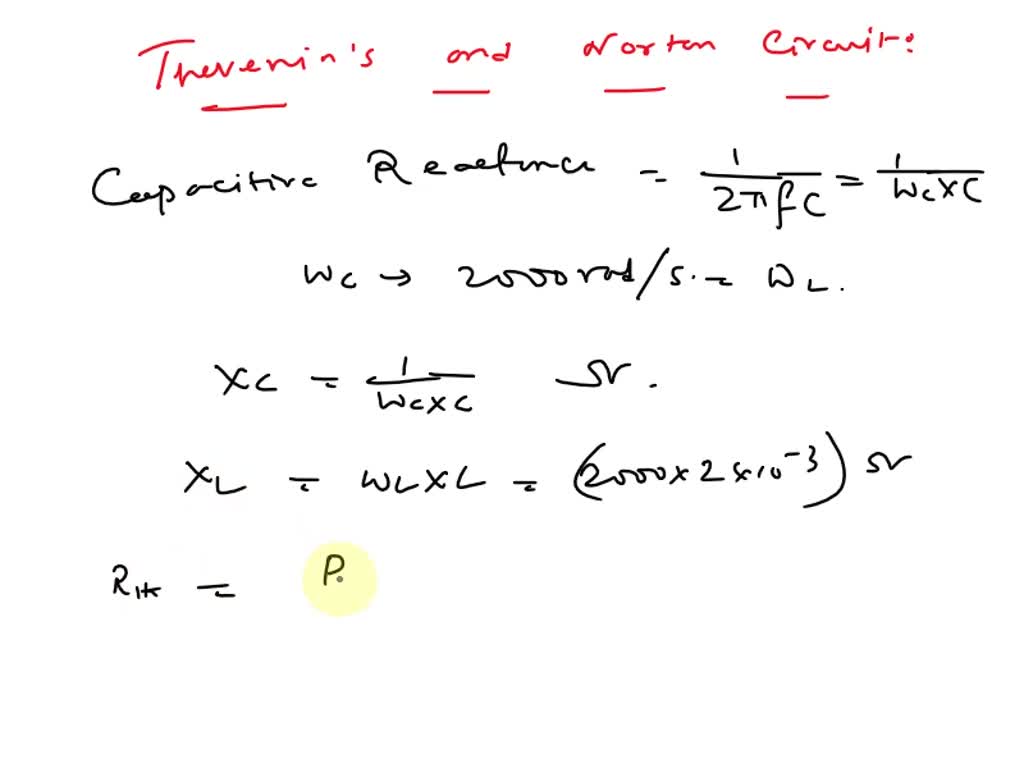 Thevenin's and Norton Circuit:
Capacitive Reactance = 1/2πfC = 1/Wc×C
Wc → 2000 rad/s. = WL.
XC = 1/Wc×C Ω.
XL = WL×L = (2000×2×10⁻³) Ω
Rth = P.